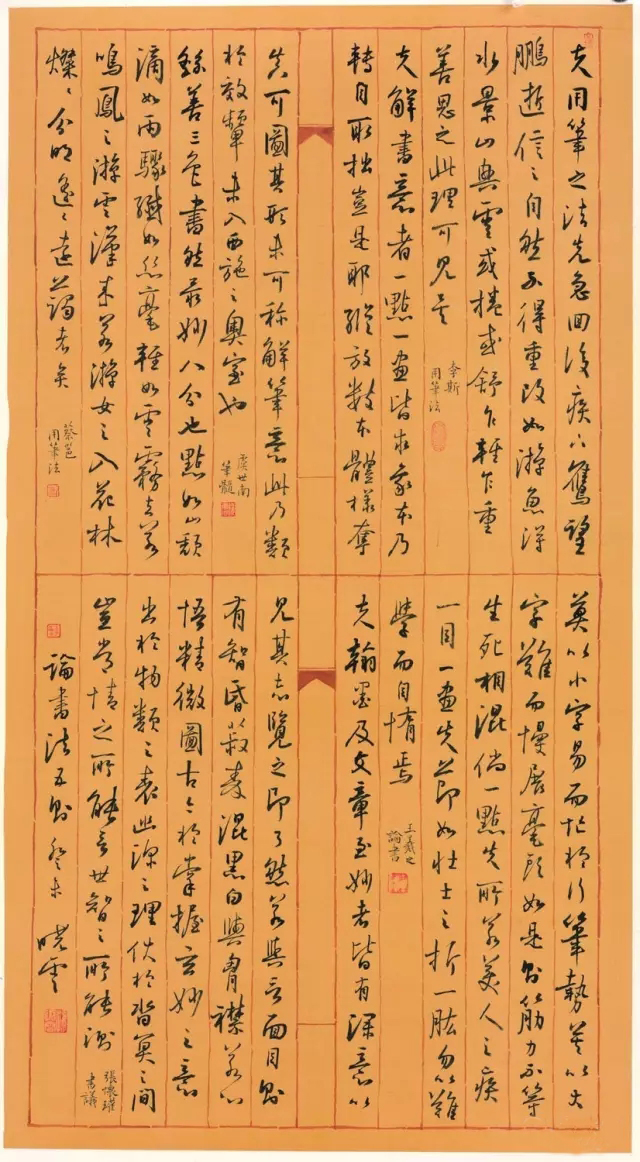 夫用筆之法先急回後疾下鷹望
鵬逝信之自然不得重改如游魚得
水景山興雲或捲或舒乍輕乍重
善思之此理可見矣
李斯
用筆法
夫解書意者一點一畫皆求象本乃
轉自取拙豈是耶縱放類本體樣奪
真可圖其形未可称解筆意此乃類
於效顰未入西施之奧室也
虞世南
筆髓
餘善三色書然最妙八分也點如山頹
滴如雨驟纖如絲毫輕如雲霧去若
鳴鳳之游雲漢来若游女之入花林
燦〻分明遙〻遠藹者矣
蔡邕
用筆法
莫以小字易而忙於行筆勢莫以大
字難而慢展毫頭如是則筋力不等
生死相混倘一點失所若美人之病
一目一畫失節如壯士之折一肱勿以難
學而自惰焉
王羲之
論書
夫翰墨及文章至妙者皆有深意以
見其志覽之即了然若與言面目則
有智昏菽麥混黑白與胷襟若心
悟精微圖古今於掌握玄妙之意
出於物類之表幽深之理伏於杳冥之間
豈常情之所能言世智之所能測
張懷瓘
書議
論書法五則癸未曉雲